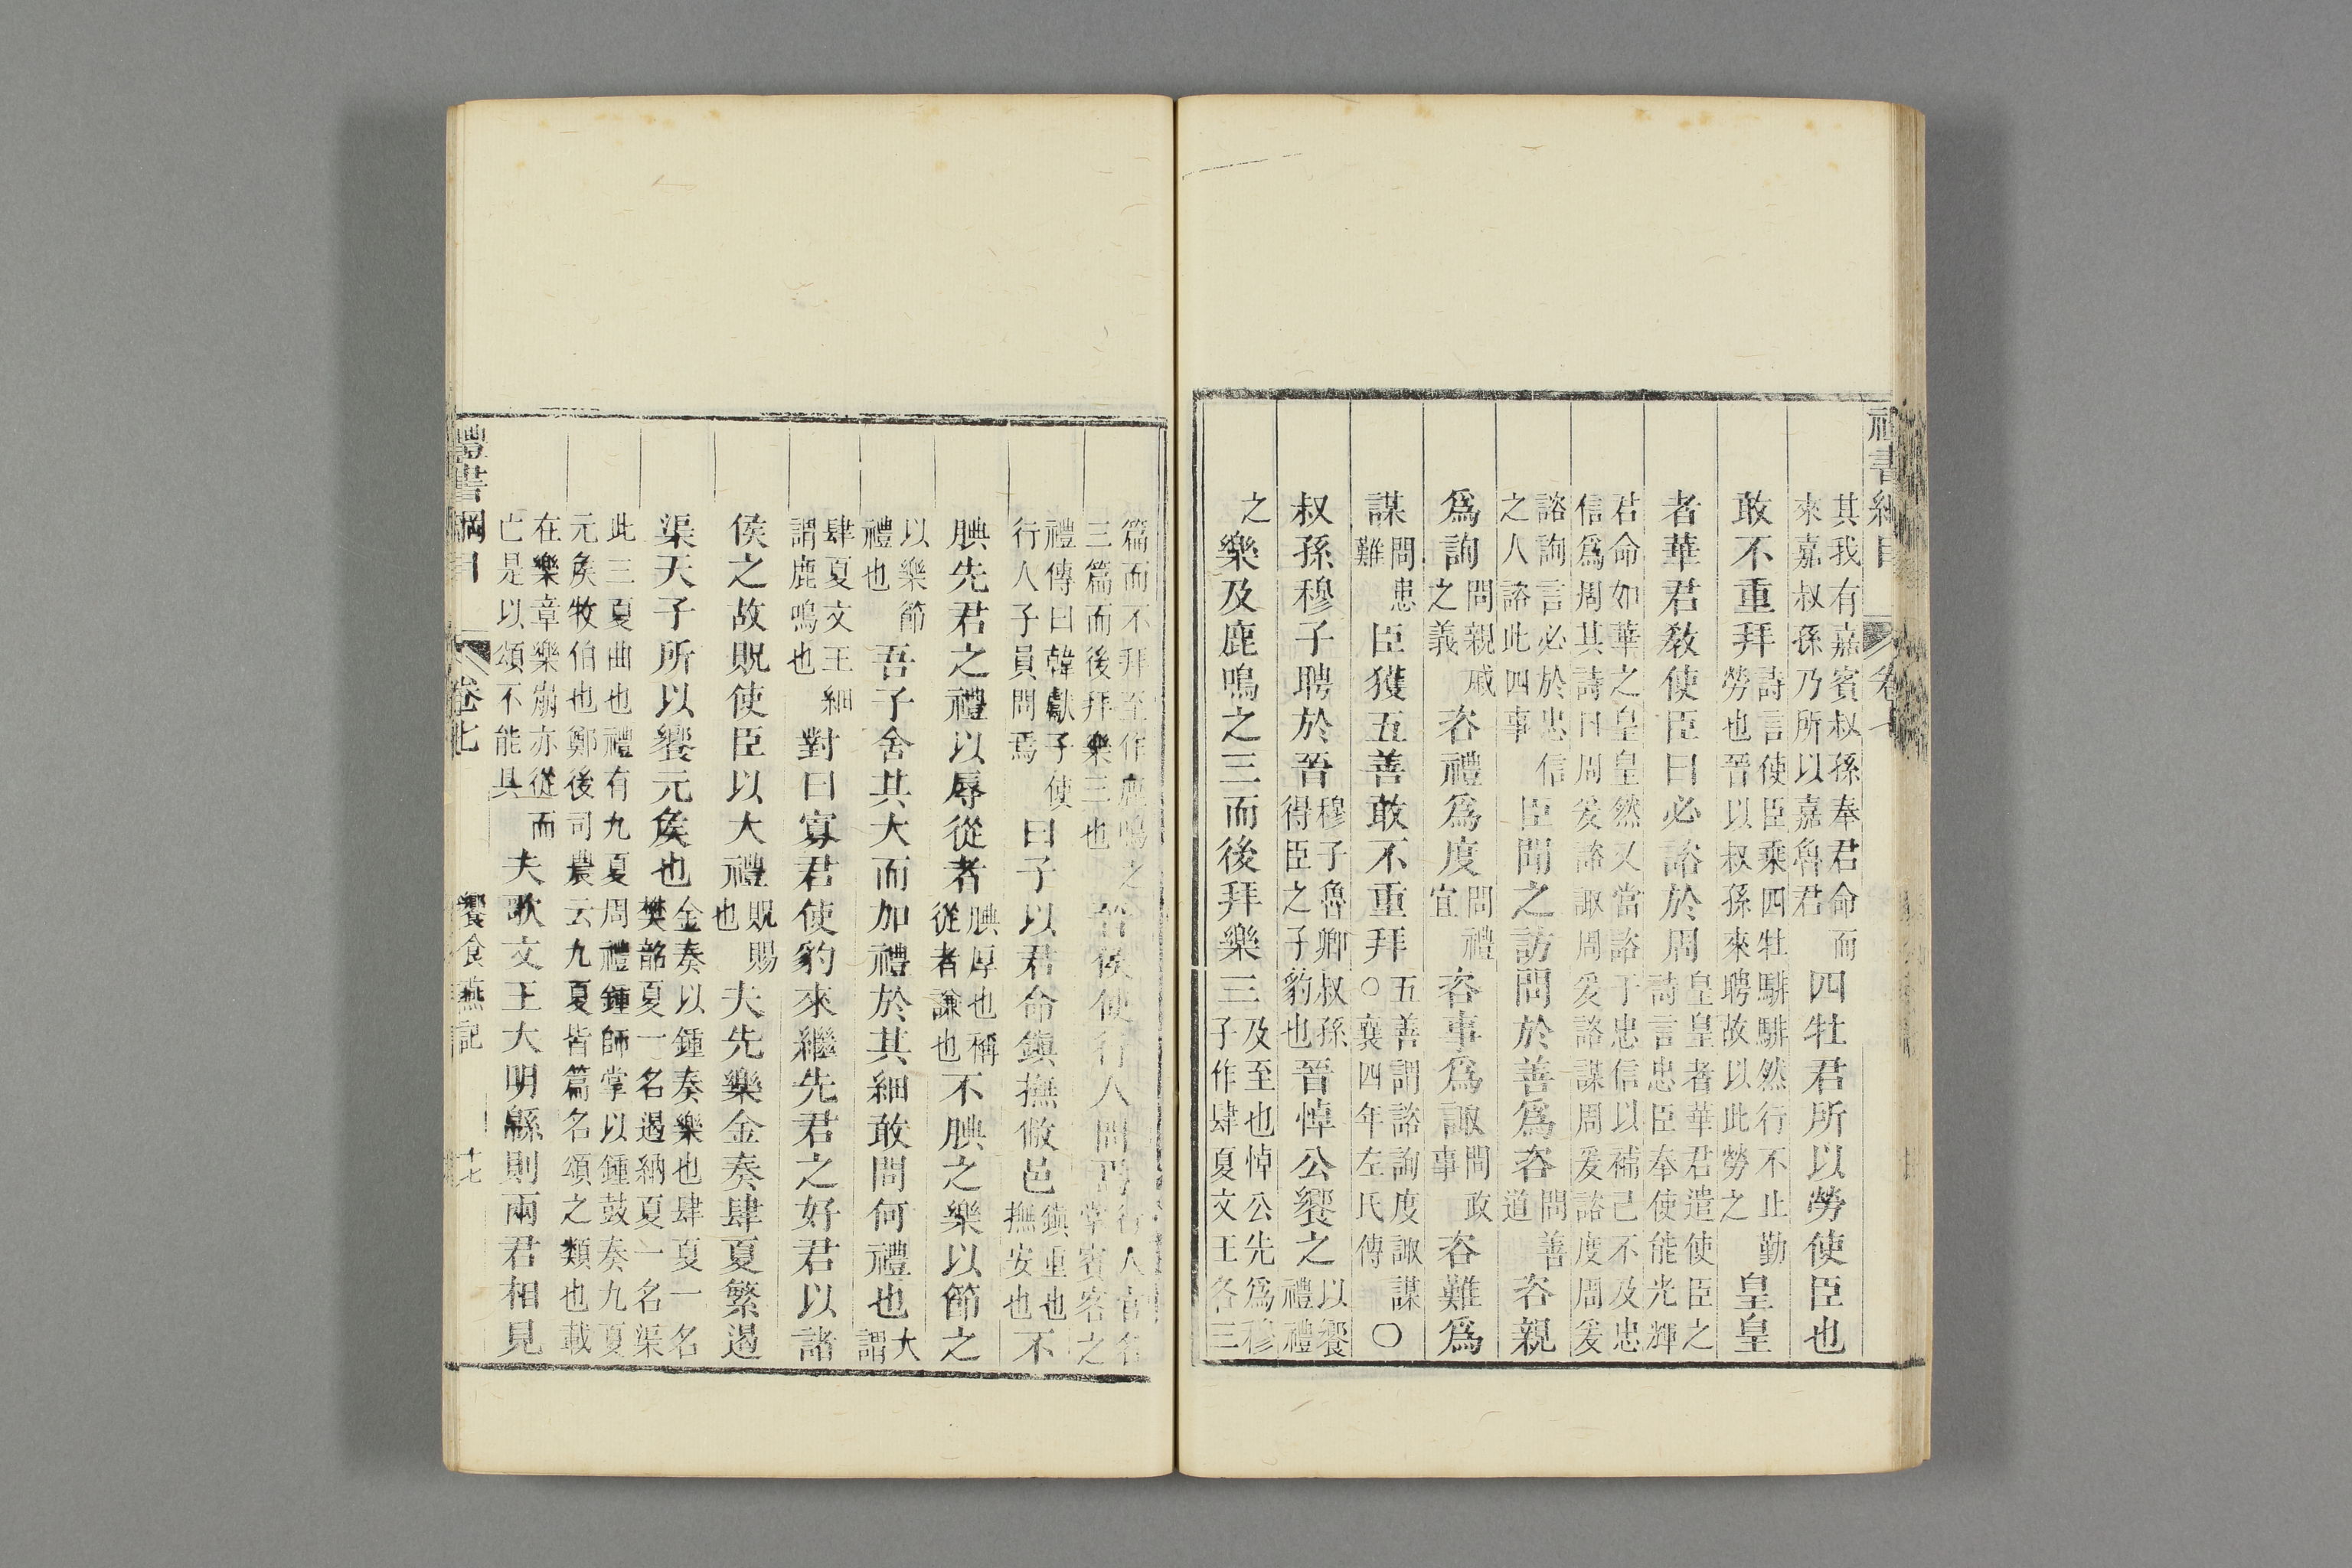 禮書綱目 卷七
其我有嘉賓叔孫奉君命而來嘉叔孫乃所以嘉魯君四牡君所以勞使臣也
敢不重拜詩言使臣乘四牡騑騑然行不止勤勞也晉以叔孫來聘故以此勞之皇皇
者華君敎使臣曰必諮於周皇皇者華君遣使臣之詩言忠臣奉使能光輝
君命如華之皇皇然又當諮于忠信以補己不及忠信爲周其詩曰周爰諮諏周爰諮謀周爰諮度周爰
諮詢言必於忠信之人諮此四事臣聞之訪問於善爲咨問善道咨親
爲詢問親戚之義咨禮爲度問禮宜咨事爲諏問政事咨難爲
謀問患難臣獲五善敢不重拜五善謂諮詢度諏謀○襄四年左氏傳○
叔孫穆子聘於晉穆子魯卿叔孫得臣之子豹也晉悼公饗之以饗禮禮
之樂及鹿鳴之三而後拜樂三及至也悼公先爲穆子作肆夏文王各三
篇而不拜至作鹿鳴之三篇而後拜樂三也晉侯使行人問焉行人官名掌賓客之
禮傳曰韓獻子使行人子員問焉曰子以君命鎭撫敝邑鎭重也撫安也不
腆先君之禮以辱從者腆厚也稱從者謙也不腆之樂以節之
以樂節禮也吾子舍其大而加禮於其細敢問何禮也大謂
肆夏文王細謂鹿鳴也對曰寡君使豹來繼先君之好君以諸
侯之故貺使臣以大禮貺賜也夫先樂金奏肆夏繁遏
渠天子所以饗元侯也金奏以鍾奏樂也肆夏一名樊韶夏一名遏納夏一名渠
此三夏曲也禮有九夏周禮鍾師掌以鍾鼓奏九夏元侯牧伯也鄭後司農云九夏皆篇名頌之類也載
在樂章樂崩亦從而亡是以頌不能具夫歌文王大明緜則兩君相見
禮書綱目 卷七 饗食燕記 十七